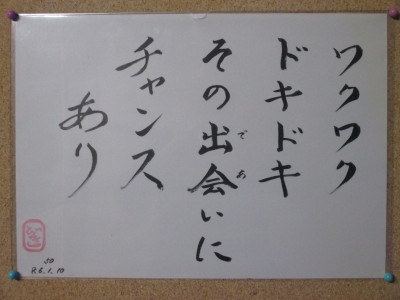 ワクワク
ドキドキ
その出会いに
であ
チャンス
あり
R.6.1.10